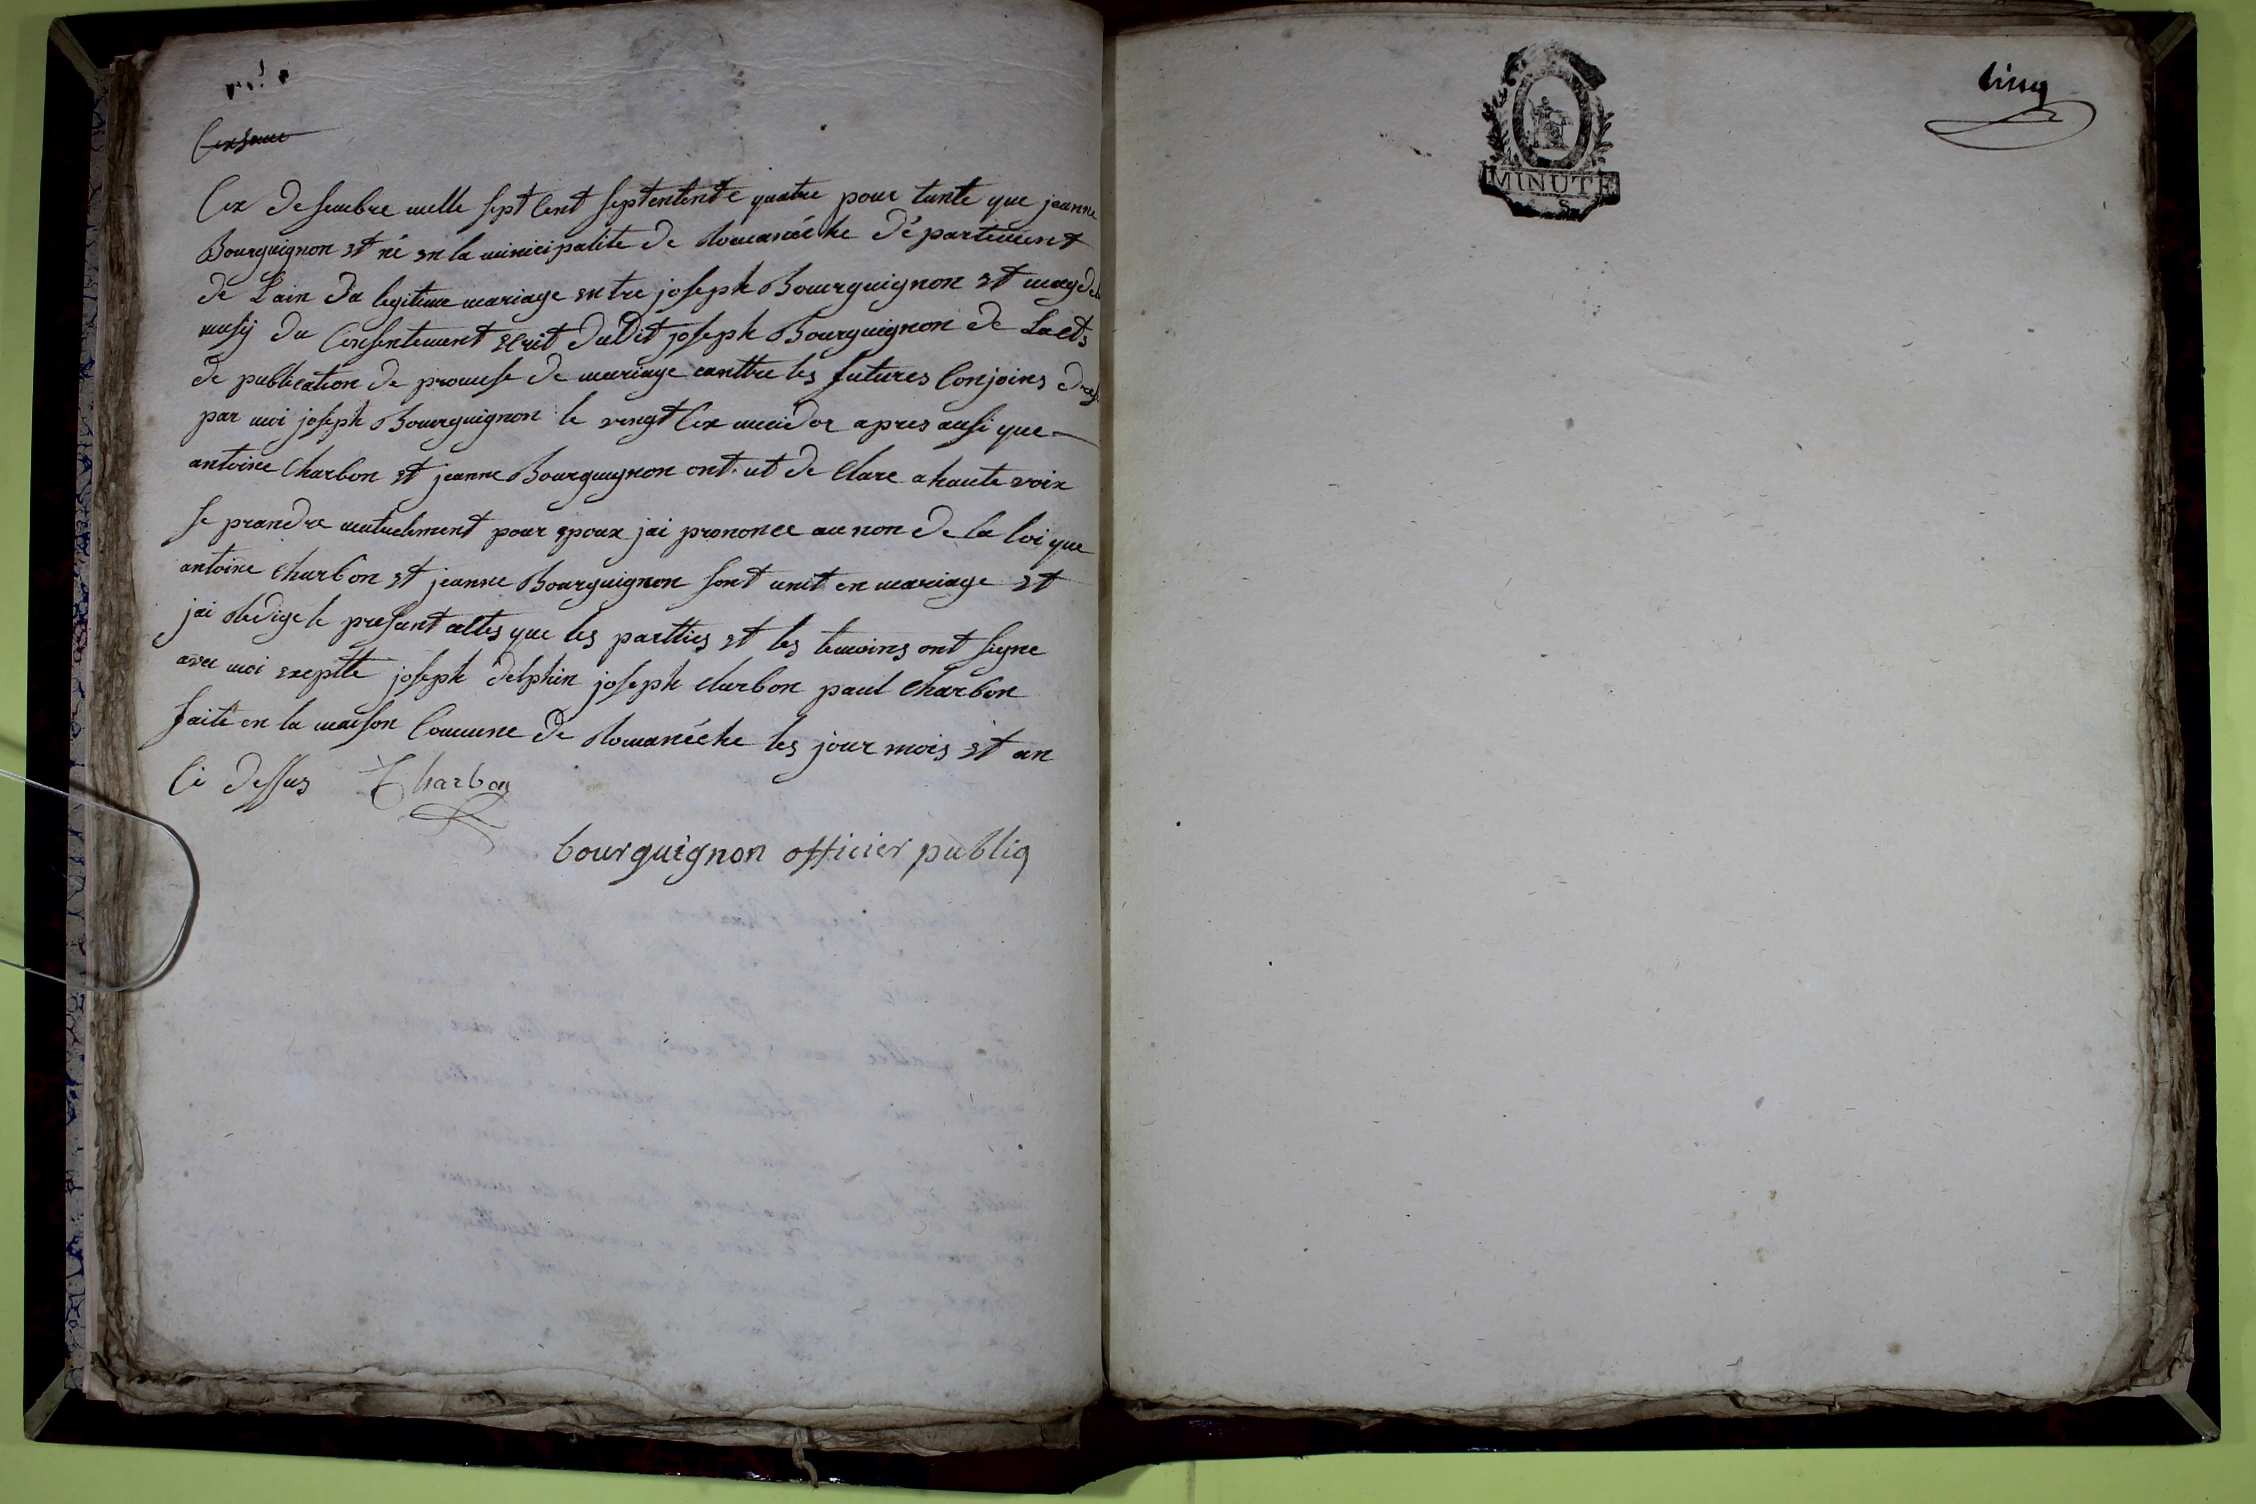 Cex desembre mille sept Cent septentente quatre pour tante que jeanne
Bourguignon et né en la municipalite de Romanéche département
de Lain du legitime mariage entre joseph Bourguignon et magde
musy du Consentement Ecrit dudit joseph Bourguignon de Lacts
de publication de promese de mariage canttre les futures Conjoins
par moi joseph Bourguignon le vingt Cex mecidor apres ausi que
antoine Charbon et jeanne Bourguignon ont ut de Clare a haute voix
se prandre mutuelement pour epoux jai prononce au non de la loi que
antoine Charbon et jeanne Bourguignon sont unit en mariage et
jai Redige le presant acttes que les partties et les temoins ont signe
avec moi exeptte joseph delphin joseph Charbon paul Charbon
faite en la maison Commune de Romanéche les jour mois et an
Ci dessus Charbon
bourguignon officier publiq
cinq
MINUTE